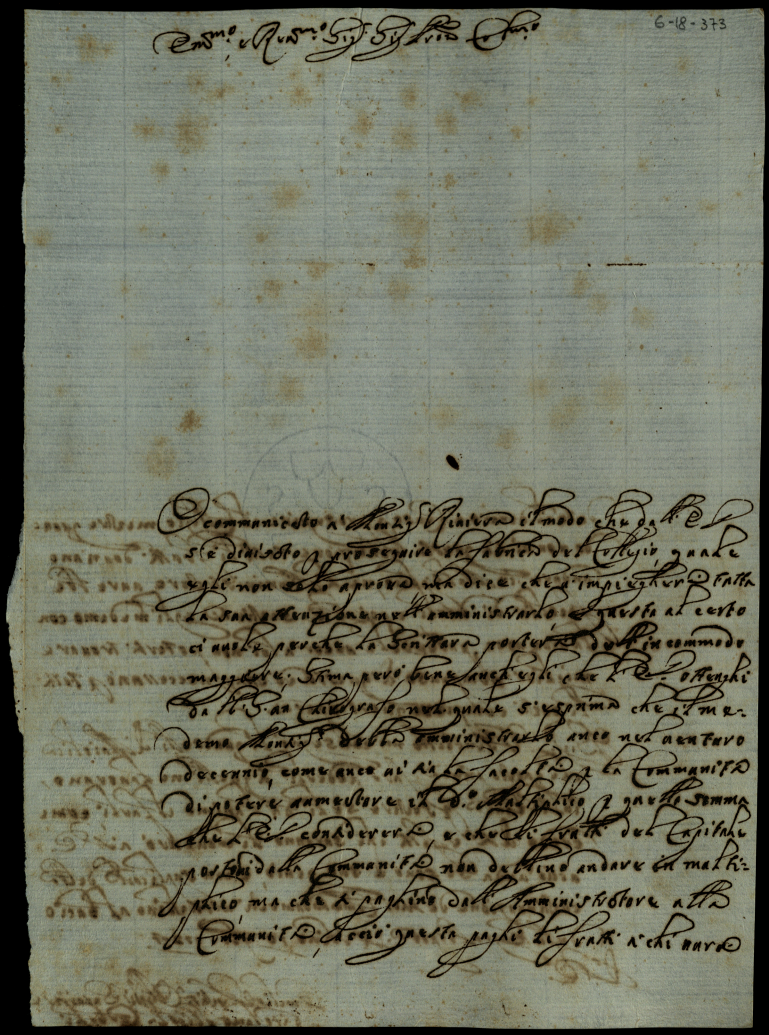 6-18-373
Em.mo e Rev.mo Sig.r Sig.r Pron Col.mo
Ò communicato à Monsig.r Riviera il modo che dall' E. V.
s'è divisato p proseguire la fabrica del Collegio, quale
egli non solo aprova ma dice che v'impiegherà tutta
la sua attenzione nell'amministrarlo e questa al certo
ci vuole perche la Scrittura porterà dell'incommodo
maggiore. Stima però bene anch'egli che l'E. V. ottenghi
dalli S. un Chirografo nel quale s'esprima che il me-
demo Monsig.r debba amministrarlo anco nel venturo
decennio, come anco vi sia la facoltà p la Communità
di potere aumentare il d.o Moltiplico p quella somma
che l'E. V. considererà, e che li frutti del Capitale
portati dalla Communità non debbino andare in molti-
plico ma che si paghino dall'Amministratore alla
Communità, acciò questa paghi li frutti à chi averà